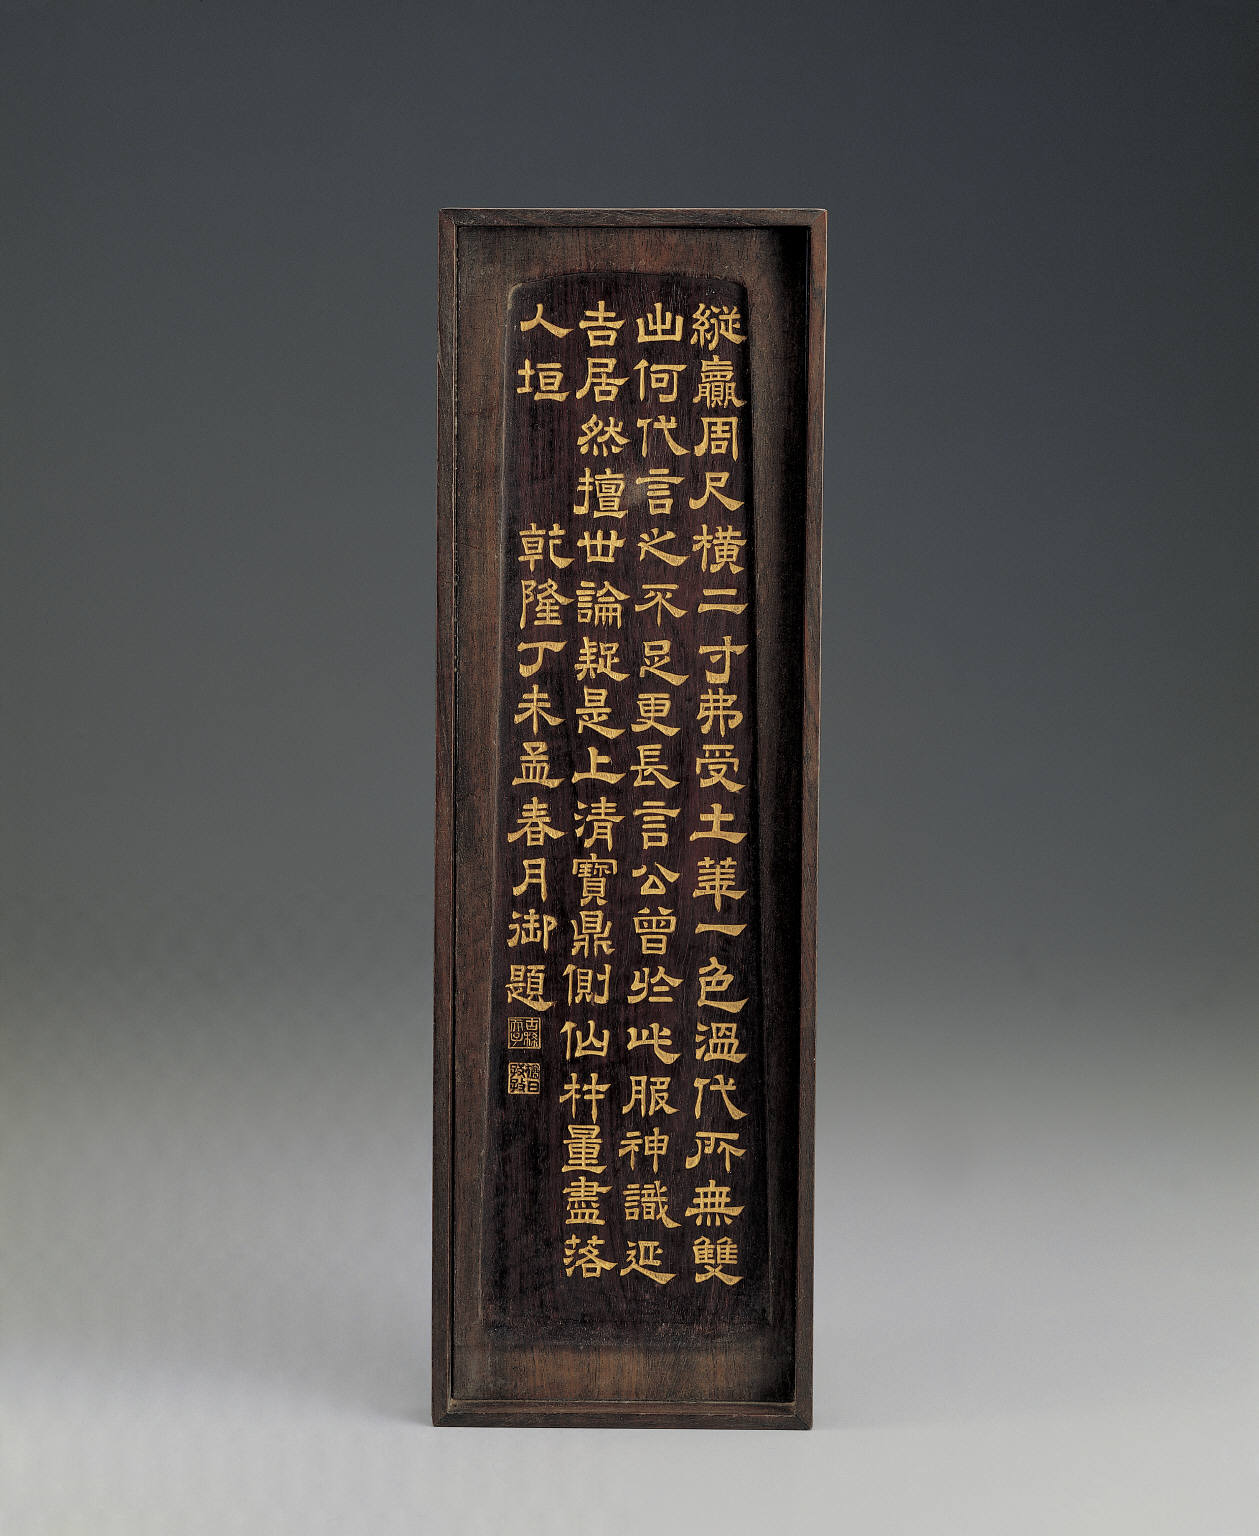 縱贏周尺橫二寸弗受土華一色溫代所無雙
出何代言之不足更長言公曾於此服神識延
吉居然擅世論疑是上清寶鼎側仙杵量盡落
人垣 乾隆丁未孟春月御題
古稀天子
猶日孜孜